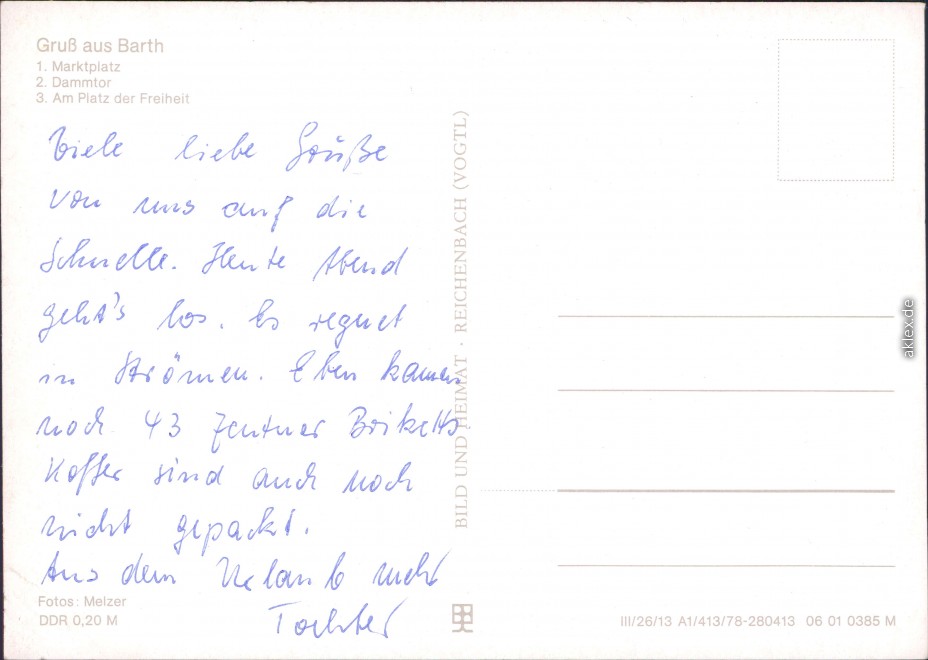 Gruß aus Barth
1. Marktplatz
2. Dammtor
3. Am Platz der Freiheit
Viele liebe Grüße
von uns auf die
Schnelle. Heute Abend
geht's los. Es regnet
in Strömen. Eben kamen
noch 43 Zentner Briketts
Koffer sind auch noch
nicht gepackt.
Aus dem Urlaub mehr
Tochter
Fotos: Melzer
DDR 0,20 M
BILD UND HEIMAT · REICHENBACH (VOGTL)
III/26/13 A1/413/78-280413 06 01 0385 M
aklex.de